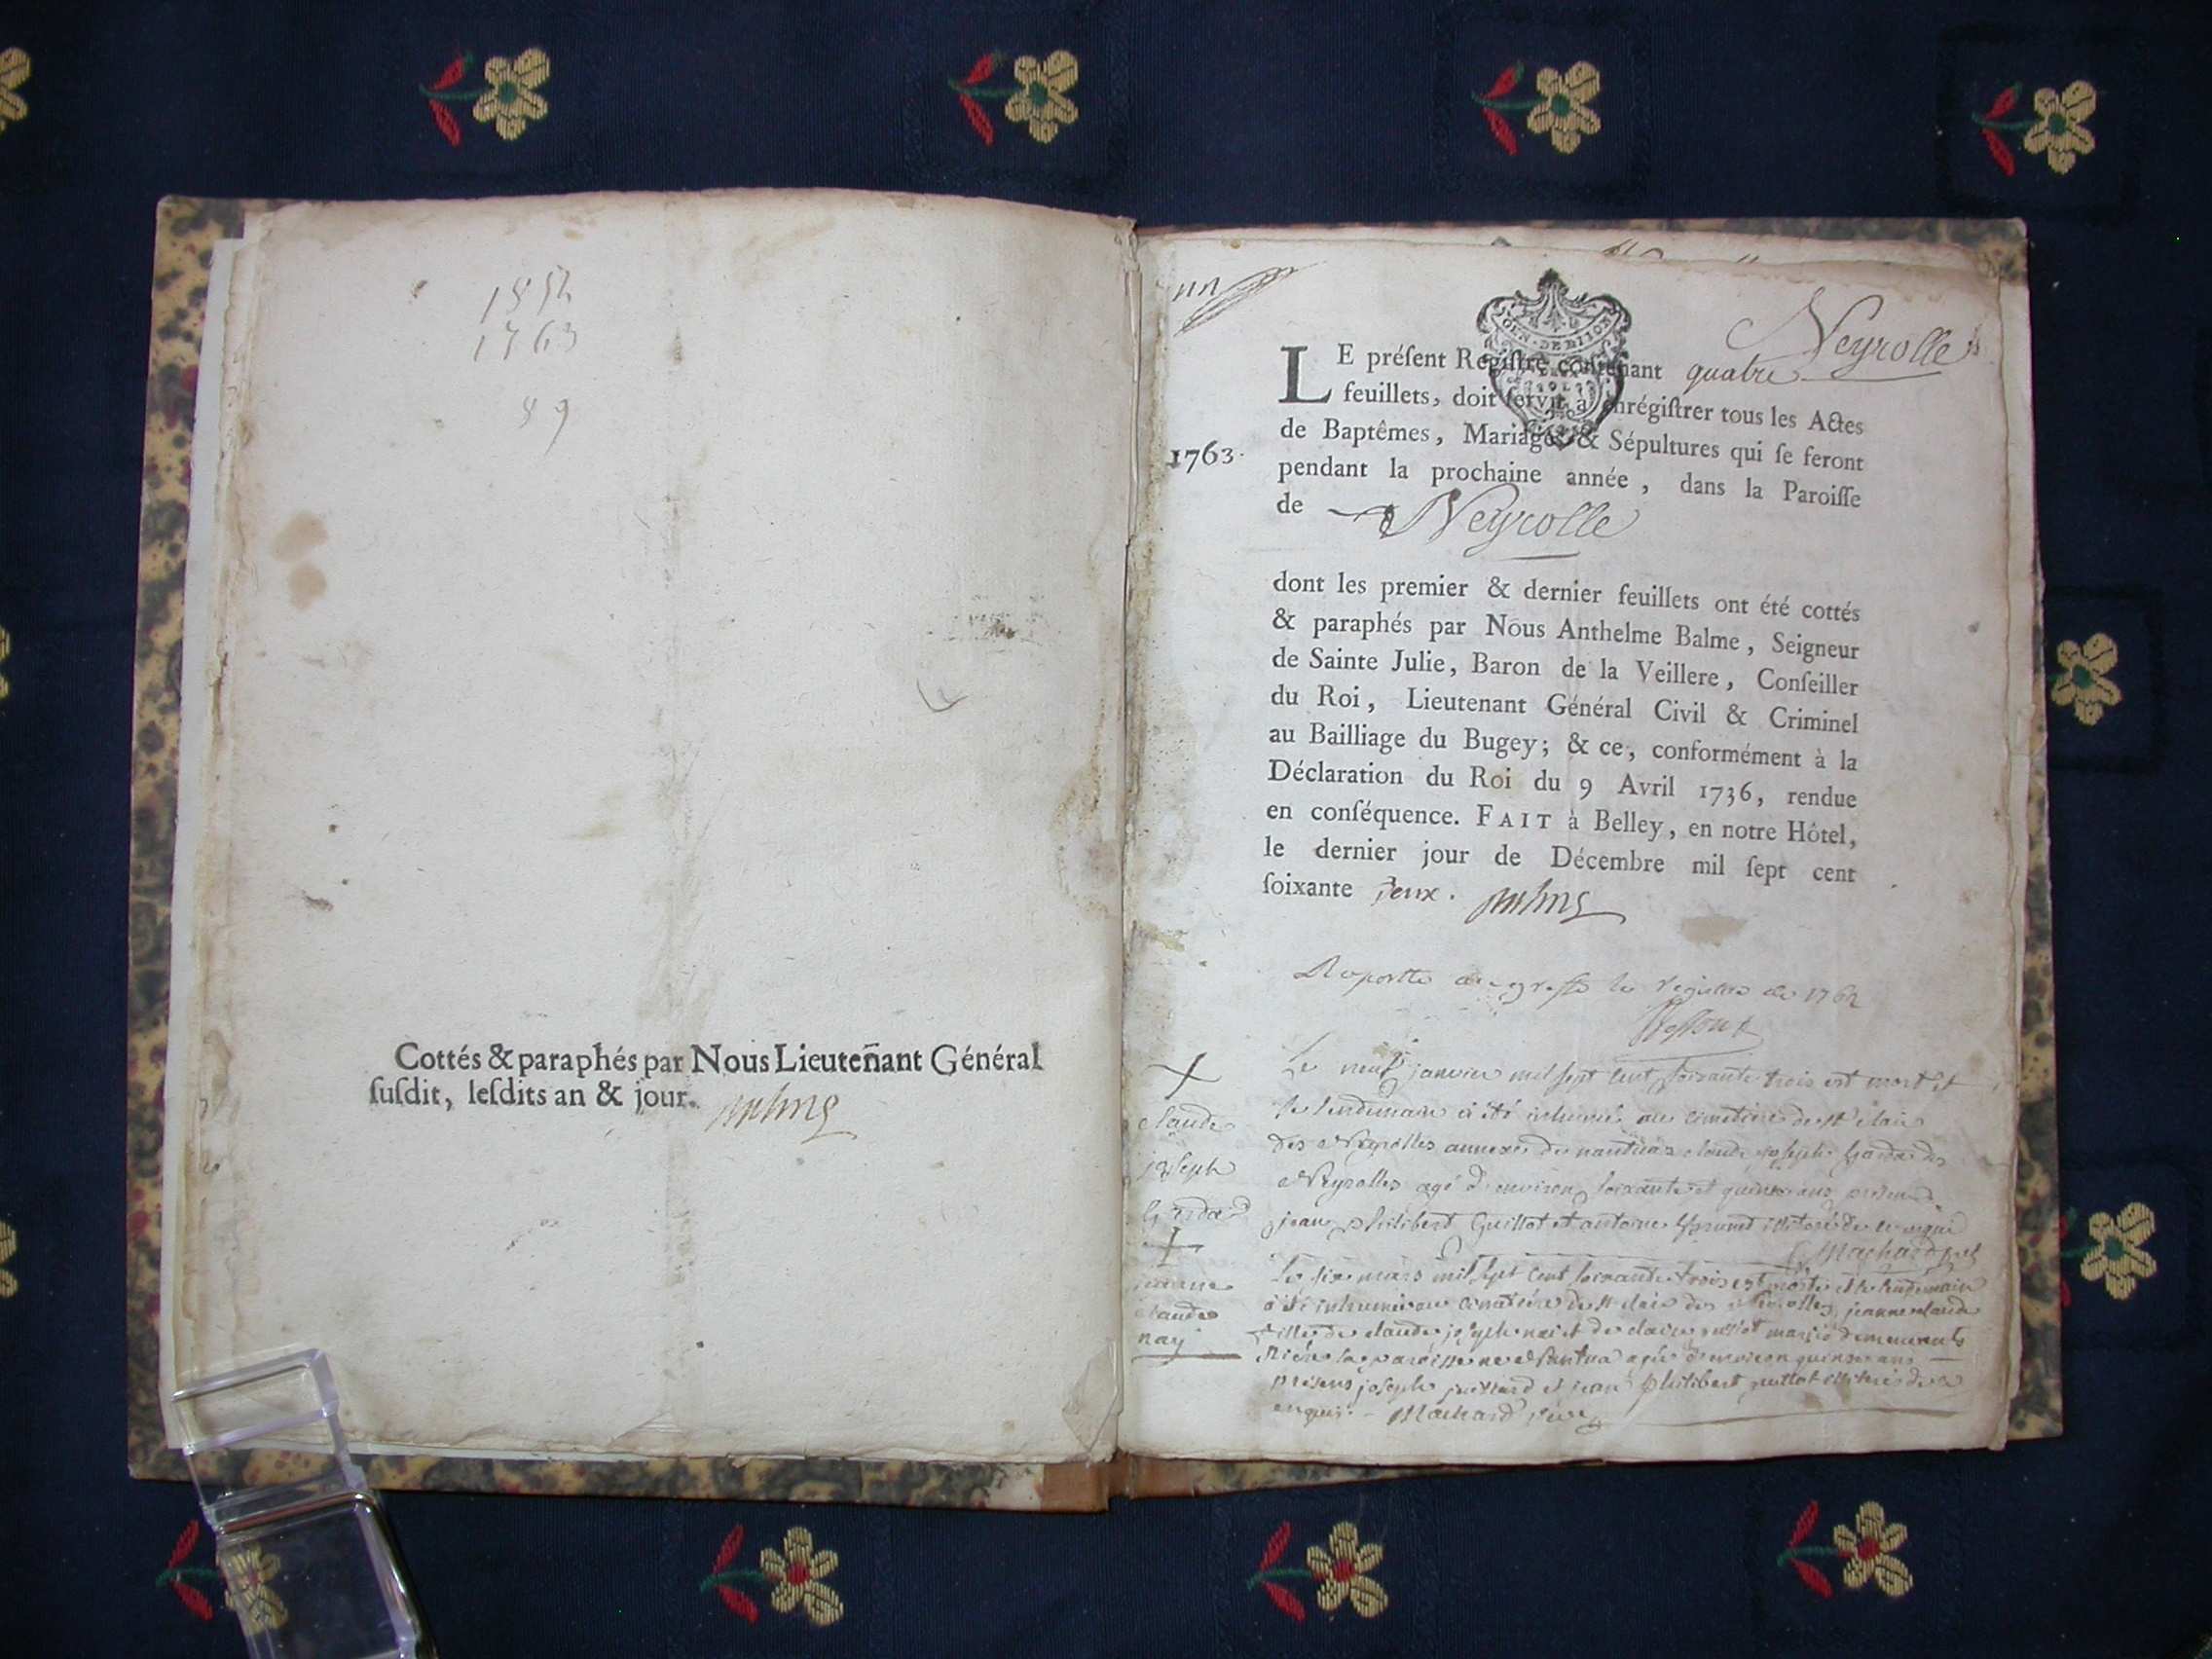 1763
89
Cottés & paraphés par Nous Lieuteñant Général
ſuſdit, leſdits an & jour.
Neyrolles
LE préſent Regiſtre contenant quatre
feuillets, doit ſervir à enrégiſtrer tous les Actes
de Baptêmes, Mariages & Sépultures qui ſe feront
1763.
pendant la prochaine année, dans la Paroiſſe
de Neyrolle
dont les premier & dernier feuillets ont été cottés
& paraphés par Nous Anthelme Balme, Seigneur
de Sainte Julie, Baron de la Veillere, Conſeiller
du Roi, Lieutenant Général Civil & Criminel
au Bailliage du Bugey; & ce, conformément à la
Déclaration du Roi du 9 Avril 1736, rendue
en conſéquence. FAIT à Belley, en notre Hôtel,
le dernier jour de Décembre mil ſept cent
ſoixante deux.
Raportté au greffe le regiſtre de 1762
Le neuf janvier mil ſept cent ſoixante trois est mort et
le lendemain a été inhumé au cimetiere de st clair
des Neyrolles annexe de nantua claude joſeph
Neyrolles agé d'environ ſoixante et quinze ans
jean philibert Guillot et antoine illiteré de ce enquis
Machard
claude
joſeph
Le six mars mil ſept cent ſoixante trois est morte et le lendemain
a été inhumée au cimetiere de st clair des Neirolles jeanne claude
fille de claude joſeph nai et de claire mariés demeurants
agée d'environ quinze ans
présens joſeph et jean philibert guillot illiteré de ce
enquis. - Machard
jeanne
claude
nay